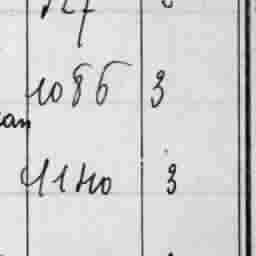 1086 3
an
1140 3